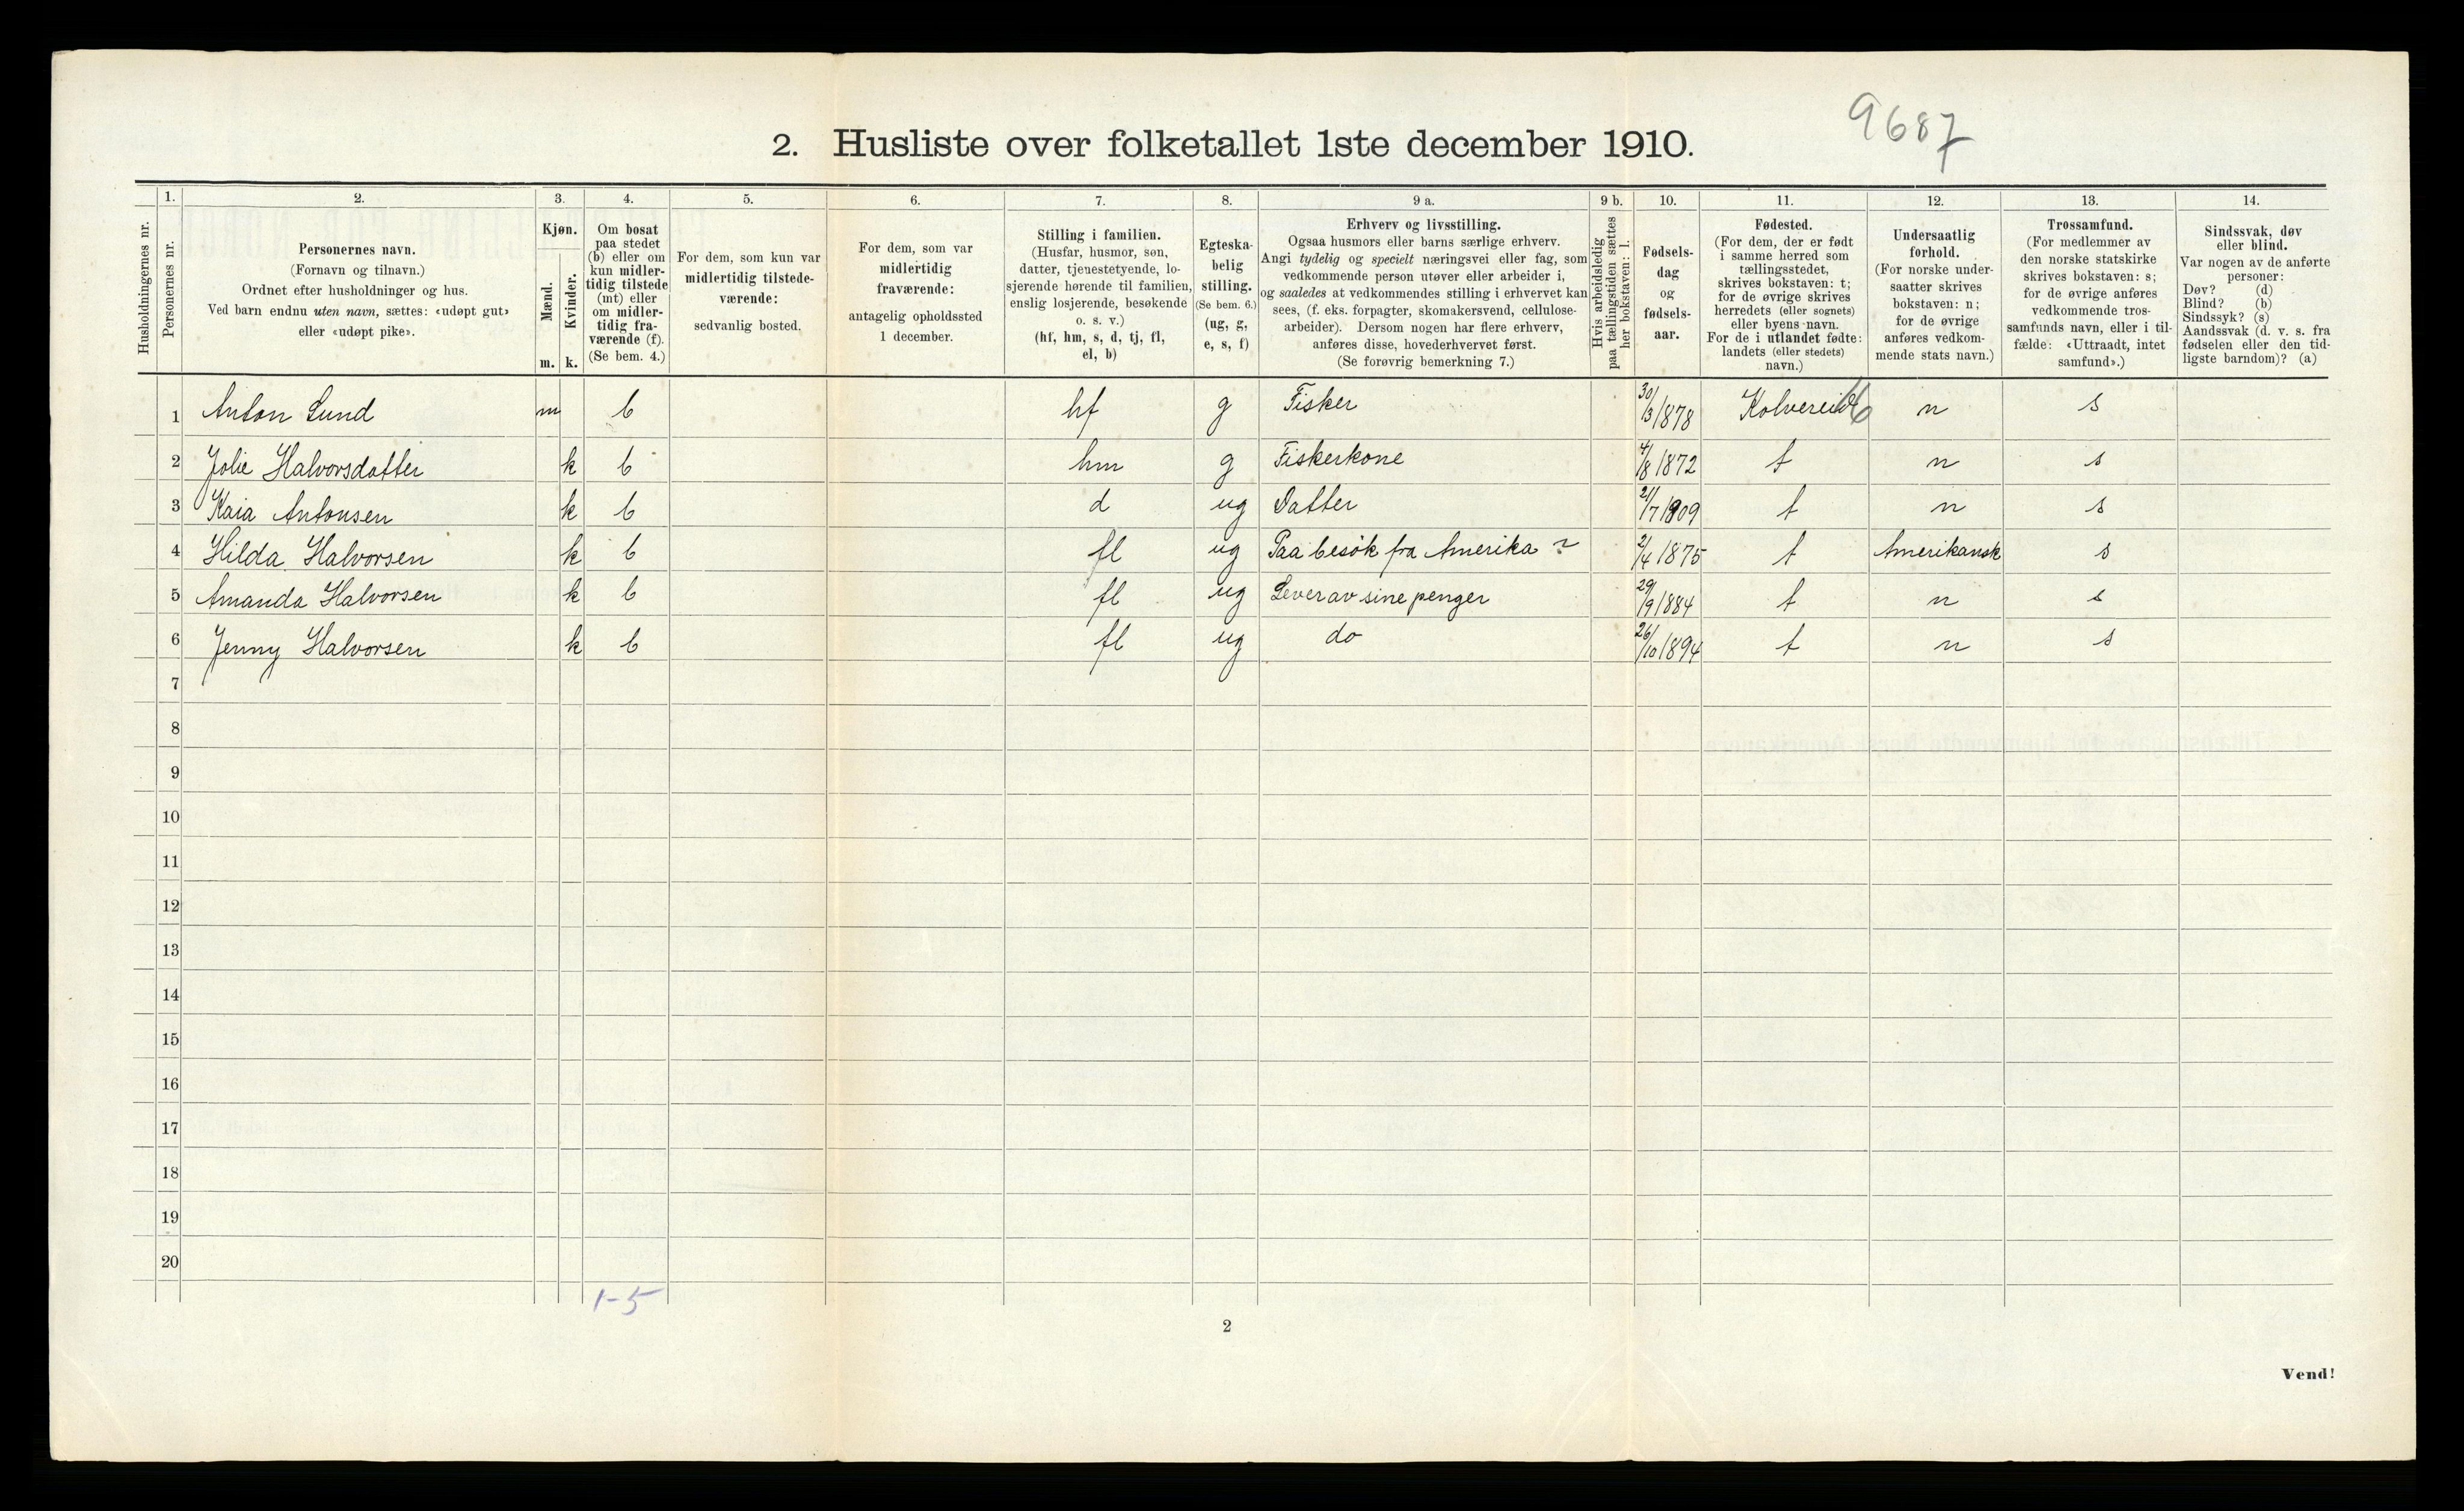 9687
2. Husliste over folketallet 1ste december 1910.
Husholdningernes nr.
1.
Personernes nr.
2.
Personernes navn.
(Fornavn og tilnavn.)
Ordnet efter husholdninger og hus.
Ved barn endnu uten navn, sættes: «udøpt gut»
eller «udøpt pike».
3.
Kjøn.
Mænd.
m.
Kvinder.
k.
4.
Om bosat
paa stedet
(b) eller om
kun midler-
tidig tilstede
(mt) eller
om midler-
tidig fra-
værende (f).
(Se bem. 4.)
5.
For dem, som kun var
midlertidig tilstede-
værende:
sedvanlig bosted.
6.
For dem, som var
midlertidig
fraværende:
antagelig opholdssted
1 december.
7.
Stilling i familien.
(Husfar, husmor, søn,
datter, tjenestetyende, lo-
sjerende hørende til familien,
enslig losjerende, besøkende
o. s. v.)
(hf, hm, s, d, tj, fl,
el, b)
8.
Egteska-
belig
stilling.
(Se bem. 6.)
(ug, g,
e, s, f)
9 a.
Erhverv og livsstilling.
Ogsaa husmors eller barns særlige erhverv.
Angi tydelig og specielt næringsvei eller fag, som
vedkommende person utøver eller arbeider i,
og saaledes at vedkommendes stilling i erhvervet kan
sees, (f. eks. forpagter, skomakersvend, cellulose-
arbeider). Dersom nogen har flere erhverv,
anføres disse, hovederhvervet først.
(Se forøvrig bemerkning 7.)
9 b.
Hvis arbeidsledig
paa tællingstiden sættes
her bokstaven: l.
10.
Fødsels-
dag
og
fødsels-
aar.
11.
Fødested.
(For dem, der er født
i samme herred som
tællingsstedet,
skrives bokstaven: t;
for de øvrige skrives
herredets (eller sognets)
eller byens navn.
For de i utlandet fødte:
landets (eller stedets)
navn.)
12.
Undersaatlig
forhold.
(For norske under-
saatter skrives
bokstaven: n;
for de øvrige
anføres vedkom-
mende stats navn.)
13.
Trossamfund.
(For medlemmer av
den norske statskirke
skrives bokstaven: s;
for de øvrige anføres
vedkommende tros-
samfunds navn, eller i til-
fælde: «Uttraadt, intet
samfund».)
14.
Sindssvak, døv
eller blind.
Var nogen av de anførte
personer:
Døv? (d)
Blind? (b)
Sindssyk? (s)
Aandssvak (d. v. s. fra
fødselen eller den tid-
ligste barndom)? (a)
1 Anton Lund m b hf g Fisker 30/3 1878 Kolvereid n s
2 Jolie Halvorsdatter k b hm g Fiskerkone 4/8 1872 t n s
3 Kaia Antonsen k b d ug Datter 21/7 1909 t n s
4 Hilda Halvorsen k b fl ug Paa besök fra Amerika ? 2/4 1875 t Amerikansk s
5 Amanda Halvorsen k b fl ug Lever av sine penger 29/9 1884 t n s
6 Jenny Halvorsen k b fl ug do 26/10 1894 t n s
7
8
9
10
11
12
13
14
15
16
17
18
19
20
1-5
2
Vend!